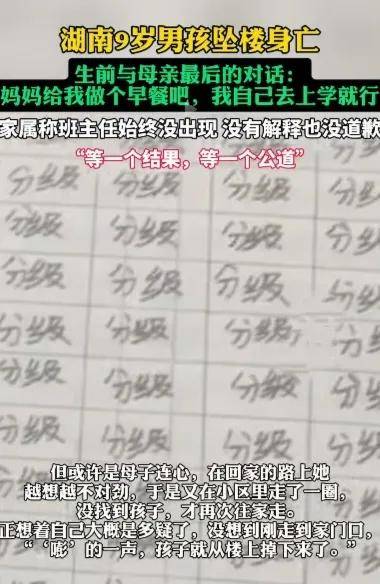 湖南9岁男孩坠楼身亡
生前与母亲最后的对话：
妈妈给我做个早餐吧，我自己去上学就行
家属称班主任始终没出现 没有解释也没道歉
“等一个结果，等一个公道”
分级 分级 分级 分级
分级 分级 分级 分级
分级 分级 分级 分级
分级 分级 分级 分级
分级 分级 分级 分级
分级 分级 分级 分级
分级 分级 分级 分级
但或许是母子连心，在回家的路上她
越想越不对劲，于是又在小区里走了一圈，
没找到孩子，才再次往家走。
正想着自己大概是多疑了，没想到刚走到家门口，
“‘嘭’的一声，孩子就从楼上掉下来了。”